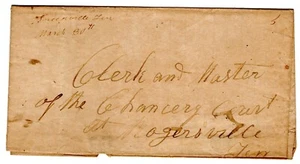 Ten
March 30th
5
Clerk and Master
of the Chancery Court
At Rogersville
Ten